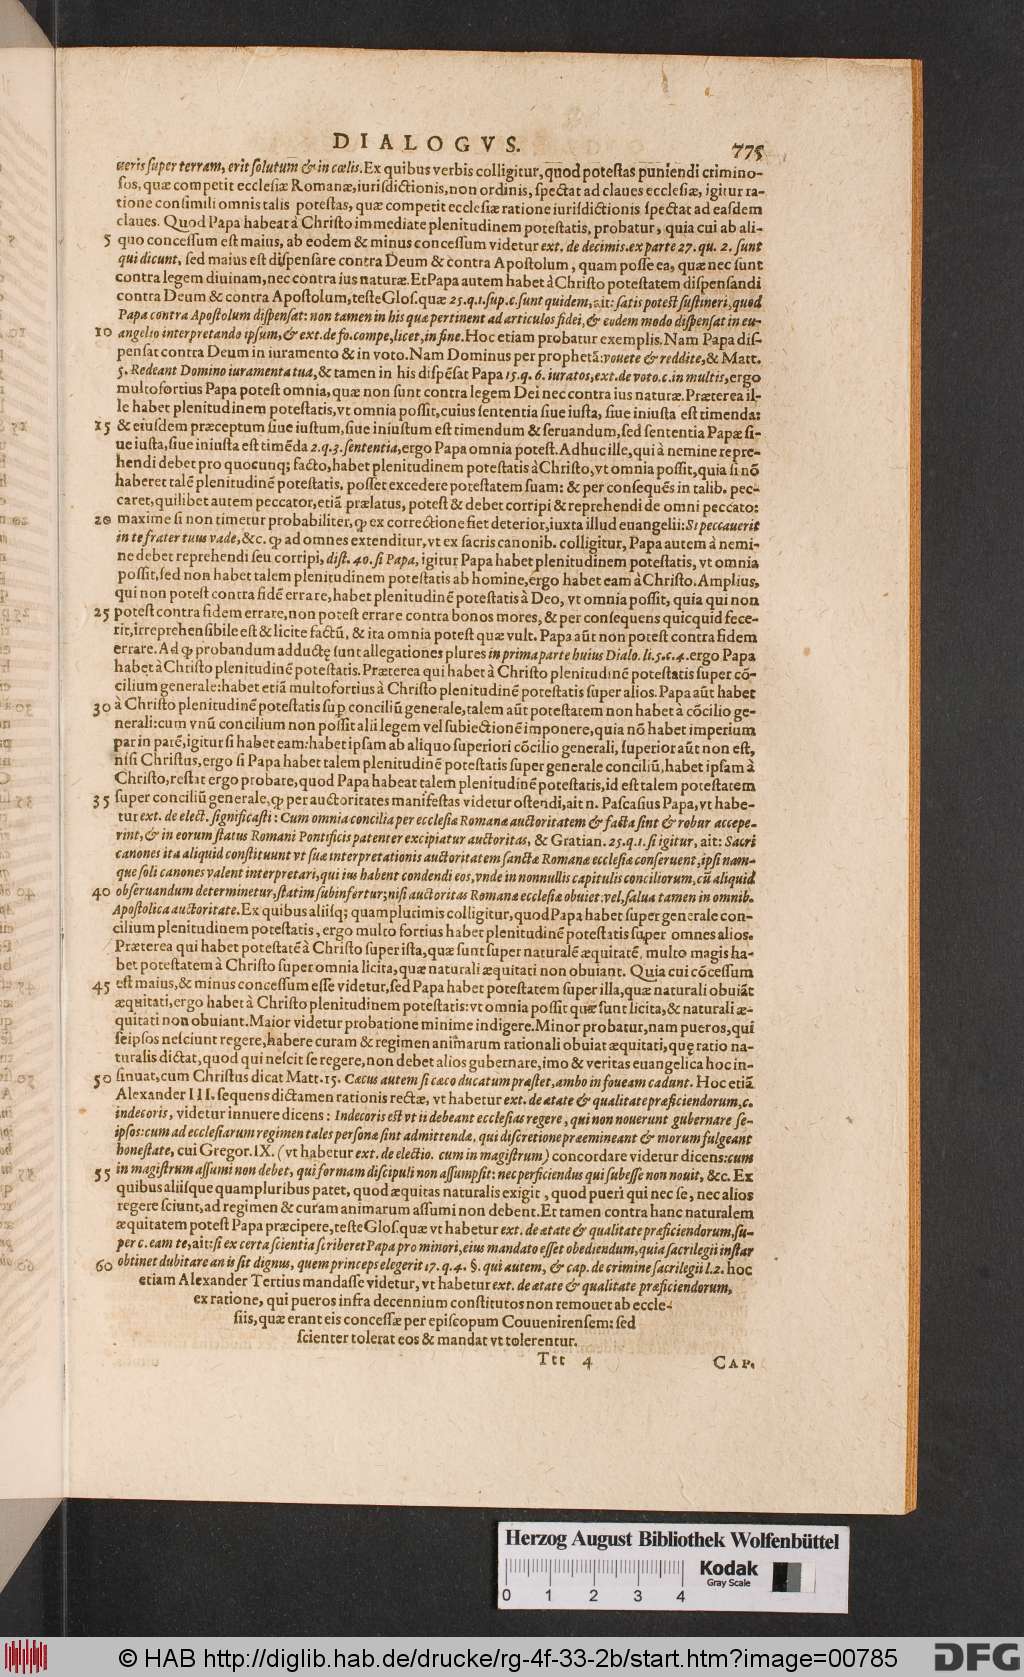 DIALOGVS. 775
ueris super terram, erit solutum & in cœlis. Ex quibus verbis colligitur, quod potestas puniendi crimino-
sos, quæ competit ecclesiæ Romanæ, iurisdictionis, non ordinis, spectat ad claues ecclesiæ, igitur ra-
tione consimili omnis talis potestas, quæ competit ecclesiæ ratione iurisdictionis spectat ad easdem
claues. Quod Papa habeat à Christo immediate plenitudinem potestatis, probatur, quia cui ab ali-
5 quo concessum est maius, ab eodem & minus concessum videtur ext. de decimis. ex parte 27. qu. 2. sunt
qui dicunt, sed maius est dispensare contra Deum & contra Apostolum, quam posse ea, quæ nec sunt
contra legem diuinam, nec contra ius naturæ. Et Papa autem habet à Christo potestatem dispensandi
contra Deum & contra Apostolum, teste Glos. quæ 25. q. 1. sup. c. sunt quidem, ait: satis potest sustineri, quod
Papa contra Apostolum dispensat: non tamen in his quæ pertinent ad articulos fidei, & eodem modo dispensat in eu-
10 angelio interpretando ipsum, & ext. de fo. compe, licet, in fine. Hoc etiam probatur exemplis. Nam Papa dis-
pensat contra Deum in iuramento & in voto. Nam Dominus per prophetā: vouete & reddite, & Matt.
5. Redeant Domino iuramenta tua, & tamen in his dispēsat Papa 15. q. 6. iuratos, ext. de voto. c. in multis, ergo
multofortius Papa potest omnia, quæ non sunt contra legem Dei nec contra ius naturæ. Præterea il-
le habet plenitudinem potestatis, vt omnia possit, cuius sententia siue iusta, siue iniusta est timenda:
15 & eiusdem præceptum siue iustum, siue iniustum est timendum & seruandum, sed sententia Papæ si-
ue iusta, siue iniusta est timēda 2. q. 3. sententia, ergo Papa omnia potest. Adhuc ille, qui à nemine repre-
hendi debet pro quocunq; facto, habet plenitudinem potestatis à Christo, vt omnia possit, quia si nō
haberet talē plenitudinē potestatis, posset excedere potestatem suam: & per consequēs in talib. pec-
caret, quilibet autem peccator, etiā prælatus, potest & debet corripi & reprehendi de omni peccato:
20 maxime si non timetur probabiliter, ꝙ ex correctione fiet deterior, iuxta illud euangelii: Si peccauerit
in te frater tuus vade, &c. ꝙ ad omnes extenditur, vt ex sacris canonib. colligitur, Papa autem à nemi-
ne debet reprehendi seu corripi, dist. 40. si Papa, igitur Papa habet plenitudinem potestatis, vt omnia
possit, sed non habet talem plenitudinem potestatis ab homine, ergo habet eam à Christo. Amplius,
qui non potest contra fidē errare, habet plenitudinē potestatis à Deo, vt omnia possit, quia qui non
25 potest contra fidem errare, non potest errare contra bonos mores, & per consequens quicquid fece-
rit, irreprehensibile est & licite factū, & ita omnia potest quæ vult. Papa aūt non potest contra fidem
errare. Ad ꝙ probandum adductę sunt allegationes plures in prima parte huius Dialo. li. 5. c. 4. ergo Papa
habet à Christo plenitudinē potestatis. Præterea qui habet à Christo plenitudinē potestatis super cō-
cilium generale: habet etiā multofortius à Christo plenitudinē potestatis super alios. Papa aūt habet
30 à Christo plenitudinē potestatis sup̱ conciliū generale, talem aūt potestatem non habet à cōcilio ge-
nerali: cum vnū concilium non possit alii legem vel subiectionē imponere, quia nō habet imperium
par in parē, igitur si habet eam: habet ipsam ab aliquo superiori cōcilio generali, superior aūt non est,
nisi Christus, ergo si Papa habet talem plenitudinē potestatis super generale conciliū, habet ipsam à
Christo, restat ergo probare, quod Papa habeat talem plenitudinē potestatis, id est talem potestatem
35 super conciliū generale, ꝙ per auctoritates manifestas videtur ostendi, ait n. Pascasius Papa, vt habe-
tur ext. de elect. significasti: Cum omnia concilia per ecclesiæ Romanæ auctoritatem & facta sint & robur accepe-
rint, & in eorum status Romani Pontificis patenter excipiatur auctoritas, & Gratian. 25. q. 1. si igitur, ait: Sacri
canones ita aliquid constituunt vt suæ interpretationis auctoritatem sanctæ Romanæ ecclesiæ conseruent, ipsi nam-
que soli canones valent interpretari, qui ius habent condendi eos, vnde in nonnullis capitulis conciliorum, cū aliquid
40 obseruandum determinetur, statim subinfertur; nisi auctoritas Romanæ ecclesiæ obuiet: vel, salua tamen in omnib.
Apostolica auctoritate. Ex quibus aliisq; quamplurimis colligitur, quod Papa habet super generale con-
cilium plenitudinem potestatis, ergo multo fortius habet plenitudinē potestatis super omnes alios.
Præterea qui habet potestatē à Christo super ista, quæ sunt super naturalē æquitatē, multo magis ha-
bet potestatem à Christo super omnia licita, quæ naturali æquitati non obuiant. Quia cui cōcessum
45 est maius, & minus concessum esse videtur, sed Papa habet potestatem super illa, quæ naturali obuiāt
æquitati, ergo habet à Christo plenitudinem potestatis: vt omnia possit quæ sunt licita, & naturali æ-
quitati non obuiant. Maior videtur probatione minime indigere. Minor probatur, nam pueros, qui
seipsos nesciunt regere, habere curam & regimen animarum rationali obuiat æquitati, quę ratio na-
turalis dictat, quod qui nescit se regere, non debet alios gubernare, imo & veritas euangelica hoc in-
50 sinuat, cum Christus dicat Matt. 15. Cæcus autem si cæco ducatum præstet, ambo in foueam cadunt. Hoc etiā
Alexander III. sequens dictamen rationis rectæ, vt habetur ext. de ætate & qualitate præficiendorum, c.
indecoris, videtur innuere dicens: Indecoris est vt ii debeant ecclesias regere, qui non nouerunt gubernare se-
ipsos: cum ad ecclesiarum regimen tales personæ sint admittendæ, qui discretione præemineant & morum fulgeant
honestate, cui Gregor. IX. (vt habetur ext. de electio. cum in magistrum) concordare videtur dicens: cum
55 in magistrum assumi non debet, qui formam discipuli non assumpsit: nec perficiendus qui subesse non nouit, &c. Ex
quibus aliisque quampluribus patet, quod æquitas naturalis exigit, quod pueri qui nec se, nec alios
regere sciunt, ad regimen & curam animarum assumi non debent. Et tamen contra hanc naturalem
æquitatem potest Papa præcipere, teste Glos. quæ vt habetur ext. de ætate & qualitate præficiendorum, su-
per c. eam te, ait: si ex certa scientia scriberet Papa pro minori, eius mandato esset obediendum, quia sacrilegii instar
60 obtinet dubitare an is sit dignus, quem princeps elegerit 17. q. 4. §. qui autem, & cap. de crimine sacrilegii l. 2. hoc
etiam Alexander Tertius mandasse videtur, vt habetur ext. de ætate & qualitate præficiendorum,
ex ratione, qui pueros infra decennium constitutos non remouet ab eccle-
siis, quæ erant eis concessæ per episcopum Couuenirensem: sed
scienter tolerat eos & mandat vt tolerentur.
Ttt 4 CAP.
Herzog August Bibliothek Wolfenbüttel
Kodak
Gray Scale
0 1 2 3 4
© HAB http://diglib.hab.de/drucke/rg-4f-33-2b/start.htm?image=00785
DFG